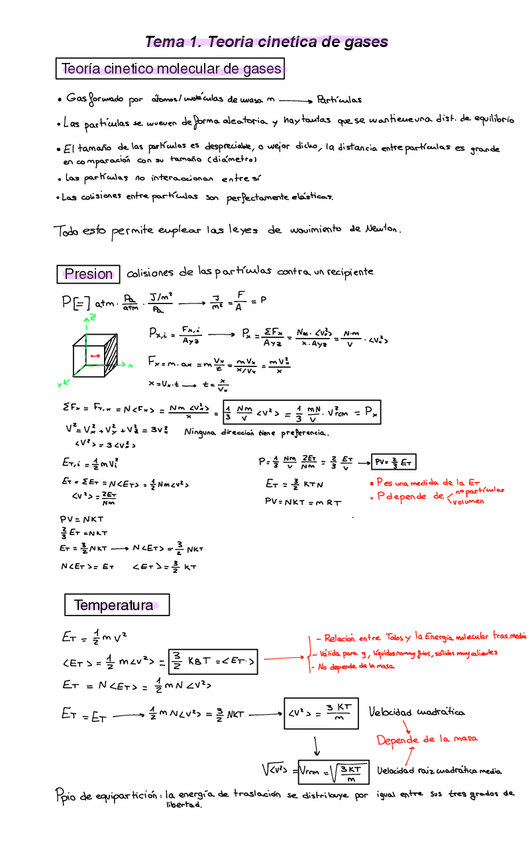 Tema 1. Teoria cinetica de gases
Teoría cinetico molecular de gases
• Gas formado por átomos/moléculas de masa m ⟶ Partículas
• Las partículas se mueven de forma aleatoria y hay tantas que se mantiene una dist. de equilibrio
• El tamaño de las partículas es despreciable, o mejor dicho, la distancia entre partículas es grande
en comparación con su tamaño (diámetro)
• Las partículas no interaccionan entre sí
• Las colisiones entre partículas son perfectamente elásticas.
Todo esto permite emplear las leyes de movimiento de Newton.
Presion colisiones de las partículas contra un recipiente
P[=] atm · Pa/atm · J/m³/Pa ⟶ J/m³ = F/A = P
z
y
x
Px,i = Fx,i/Ayz ⟶ Px = ΣFx/Ayz = Nm·<Vx²>/x·Ayz = N·m/V · <Vx²>
Fx = m·ax = m Vx/t = mVx/x/Vx = mVx²/x
x = Vx·t ⟶ t = x/Vx
ΣFx = FT,x = N<Fx> = Nm <Vx²>/x = 1/3 Nm/V <V²> = 1/3 mN/V · V²rcm = Px
V² = Vx² + Vy² + Vz² = 3Vx² Ninguna dirección tiene preferencia.
<V²> = 3<Vx²>
ET,i = 1/2 mVi² P = 1/3 Nm/V 2ET/Nm = 2/3 ET/V ⟶ PV = 2/3 ET
ET = ΣET = N<ET> = 1/2 Nm<V²> ET = 3/2 KTN • P es una medida de la ET
<V²> = 2ET/Nm PV = NKT = m RT • P depende de < nº partículas
volumen
PV = NKT
2/3 ET = NKT
ET = 3/2 NKT ⟶ N<ET> = 3/2 NKT
N<ET> = ET <ET> = 3/2 KT
Temperatura
ET = 1/2 m V²
- Relación entre Tabs y la Energía molecular tras.media
<ET> = 1/2 m<V²> = 3/2 KBT = <ET>
- Válida para g, líquidos no muy fríos, sólidos muy calientes
- No depende de la masa
ET = N<ET> = 1/2 mN <V²>
ET = ET ⟶ 1/2 mN<V²> = 3/2 NKT ⟶ <V²> = 3KT/m Velocidad cuadrática
Depende de la masa
√<V²> = Vrcm = √3KT/m Velocidad raiz cuadrática media
Ppio de equipartición: la energía de traslación se distribuye por igual entre sus tres grados de
libertad.